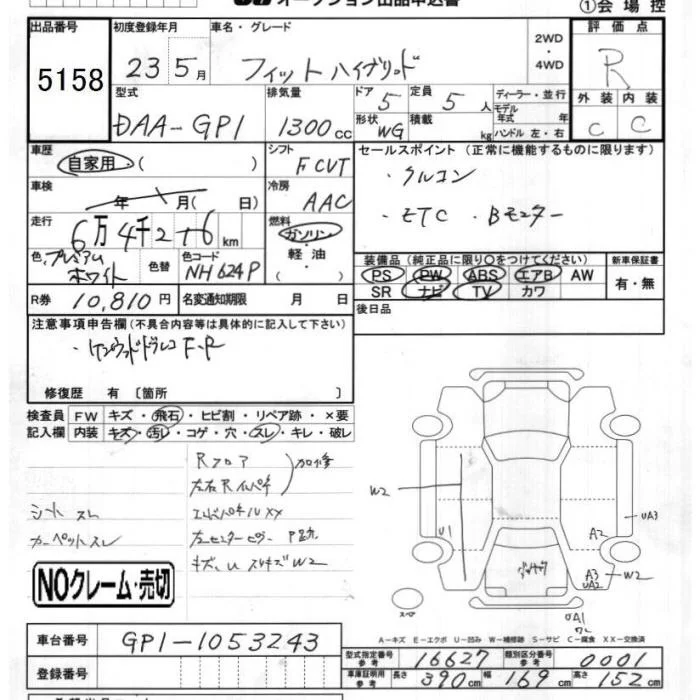 オークション出品申込書
①会場控
出品番号 初度登録年月 車名・グレード 2WD・4WD 評価点
5158 23年5月 フィットハイブリッド R
型式 排気量 ドア 定員 ディーラー・並行 外装 内装
DAA-GP1 1300cc 5 5人 モデル年式 年 C C
形状 WG 積載 kg ハンドル 左・右
車歴 自家用・( ) シフト FCVT セールスポイント (正常に機能するものに限ります)
・クルコン
車検 年 月( 日) 冷房 AAC
・ETC ・Bモニター
走行 6万4千2十6km 燃料 ガソリン・軽油・( )
色 プレミアムホワイト 色替 色コード NH624P
装備品 (純正品に限り○をつけてください) 新車保証書
PS PW ABS エアB AW 有・無
SR ナビ TV カワ
R券 10,810円 名変通知期限 月 日 後日品
注意事項申告欄 (不具合内容等は具体的に記入して下さい)
・ケンウッドドラレコ F・R
修復歴 有 〔箇所 〕
検査員 FW キズ・飛石・ヒビ割・リペア跡・×要
記入欄 内装 キズ・汚レ・コゲ・穴・スレ・キレ・破レ
Rフロア
左右Rインパネ 加修
シートスレ
エンドパネルXX
カーペットスレ
キズ、U スリキズW2
W2
U1
UA3
A2
A3 W2
UA2
UA1
スペア
NOクレーム・売切
A-キズ E-エクボ U-凹み W-補修跡 S-サビ C-腐食 XX-交換済
車台番号 GP1-1053243
型式指定番号 参考 16627 類別区分番号 参考 0001
登録番号
車庫証明用 参考 長さ 390cm 幅 169cm 高さ 152cm